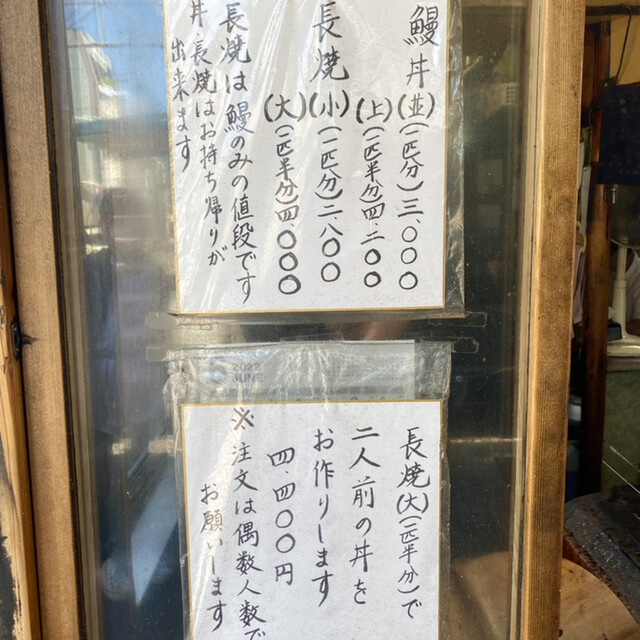 鰻丼(並)(一匹分)三.〇〇〇
(上)(一匹半分)四.二〇〇
長焼(小)(一匹分)二.八〇〇
(大)(一匹半分)四.〇〇〇
長焼は鰻のみの値段です
丼・長焼はお持ち帰りが
出来ます
長焼(大)(一匹半分)で
二人前の丼を
お作りします
四.四〇〇円
※注文は偶数人数で
お願いします
2022